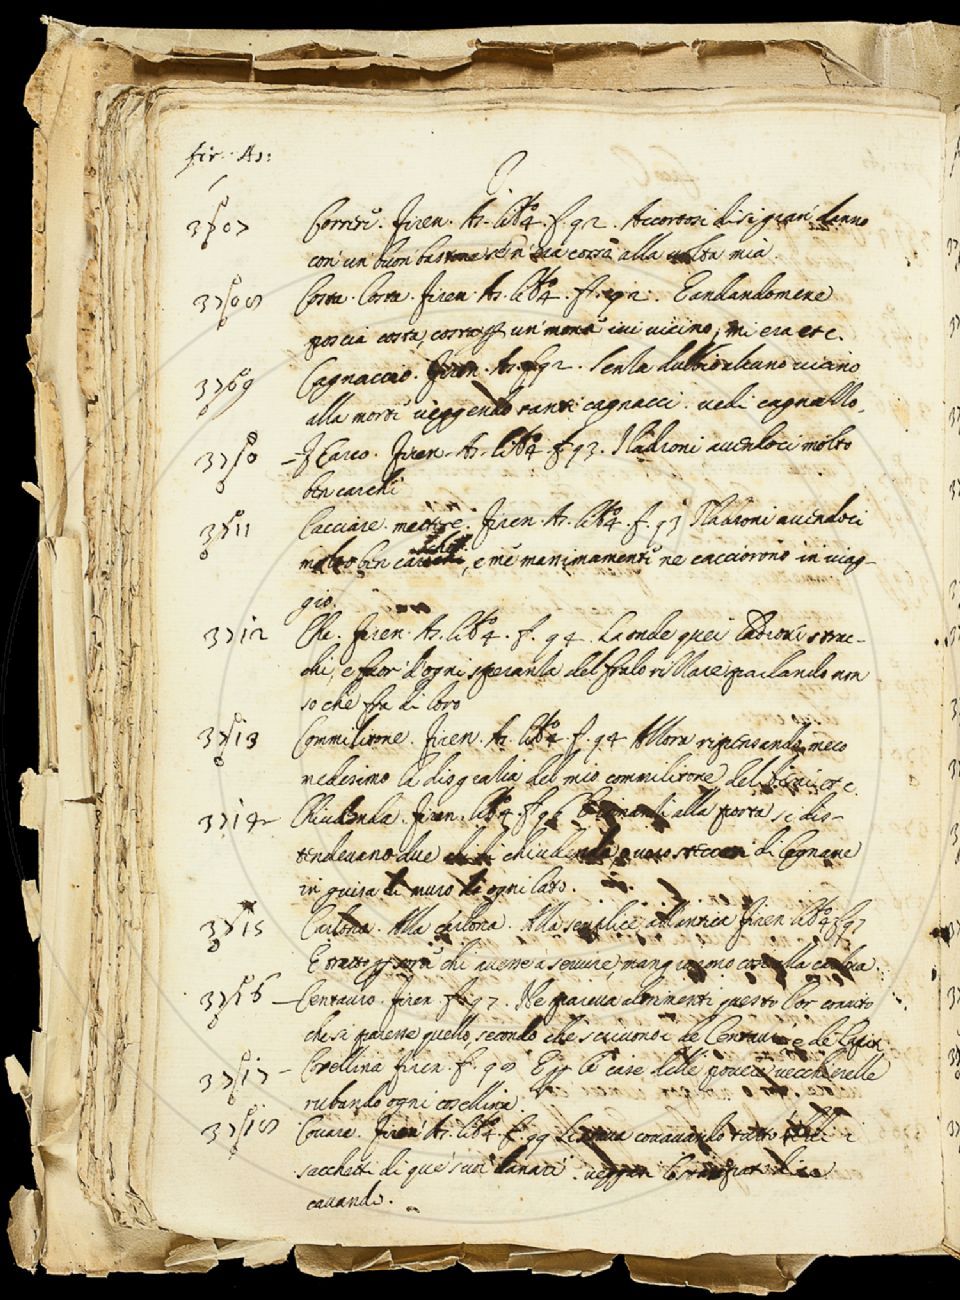 fir. As:
C
3707 Correre. Firen. As. lib.o 4. f. 92. Accortosi di sì gran danno
con un buon bastone se n'era corso alla volta mia
3708 Costa. Costa. Firen. As. lib.o 4. f. 92. E andandomene
poscia costa, costa un mona ivi vicino, mi era etc.
3709 Cagnaccio. Firen. As. f. 92. Senza dubbio alcuno vicino
alla morte veggendo tanti cagnacci. vedi cagnazzo.
3710 Carco. Firen. As. lib.o 4. f. 93. I ladroni avendoci molto
ben carchi
3711 Cacciare. mettere. Firen. As. lib.o 4. f. 93 I ladroni avendoci
molto ben carichi, e me manimamente ne cacciorono in viag-
gio.
3712 Che. Firen. As. lib.o 4. f. 94. Laonde quei ladroni strac-
chi, e fuor d'ogni speranza del parlando non
so che fra di loro
3713 Commilitone. Firen. As. lib.o 4. f. 94 Allora ripensando meco
medesimo la disgrazia del mio commilitone del etc.
3714 Chiudenda. Firen. lib.o 4. f. 96 E innanzi alla porta si dis-
tendevano due di chiudenda, o vero steccati di legname
in guisa di muro di ogni lato.
3715 Carlona. Alla carlona. Alla semplice, all'antica Firen lib.o 4. f. 97
E tratto per sorte chi avesse a servire, mangiammo così alla carlona.
3716 Centauro. Firen f. 97. Ne pareva altrimenti questo lor convito
che si paresse quello, secondo che scrivonsi de Centauri e de Lapiti
3717 Cosellina Firen. f. 98. E per le case delle povere vecchierelle
rubando ogni cosellina.
3718 Covare. Firen. As. lib.o 4. f. 99 Si stava covando tutto i
sacchetti di que' suoi danari. veggasi
cavandi.